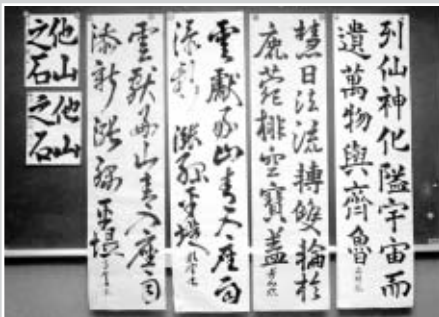 列仙神化隘宇宙而
遺萬物與齊魯
慧日法流轉雙輪於
鹿菀排空寶蓋
雲獻山青入座雨
添新漲綠平堤
雲獻山青入座雨
添新漲綠平堤
他山
之石
他山
之石